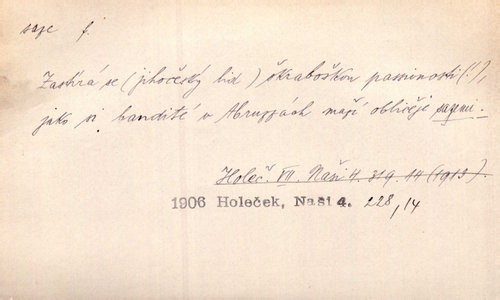 saze f.
Zastírá se (jihočeský lid) škraboškou passivnosti (!),
jako si bandité v Abruzzách maží obličeje sazemi.
Holeč. VII. Naši 4. 319. 14 (1913).
1906 Holeček, Naši 4. 228, 14